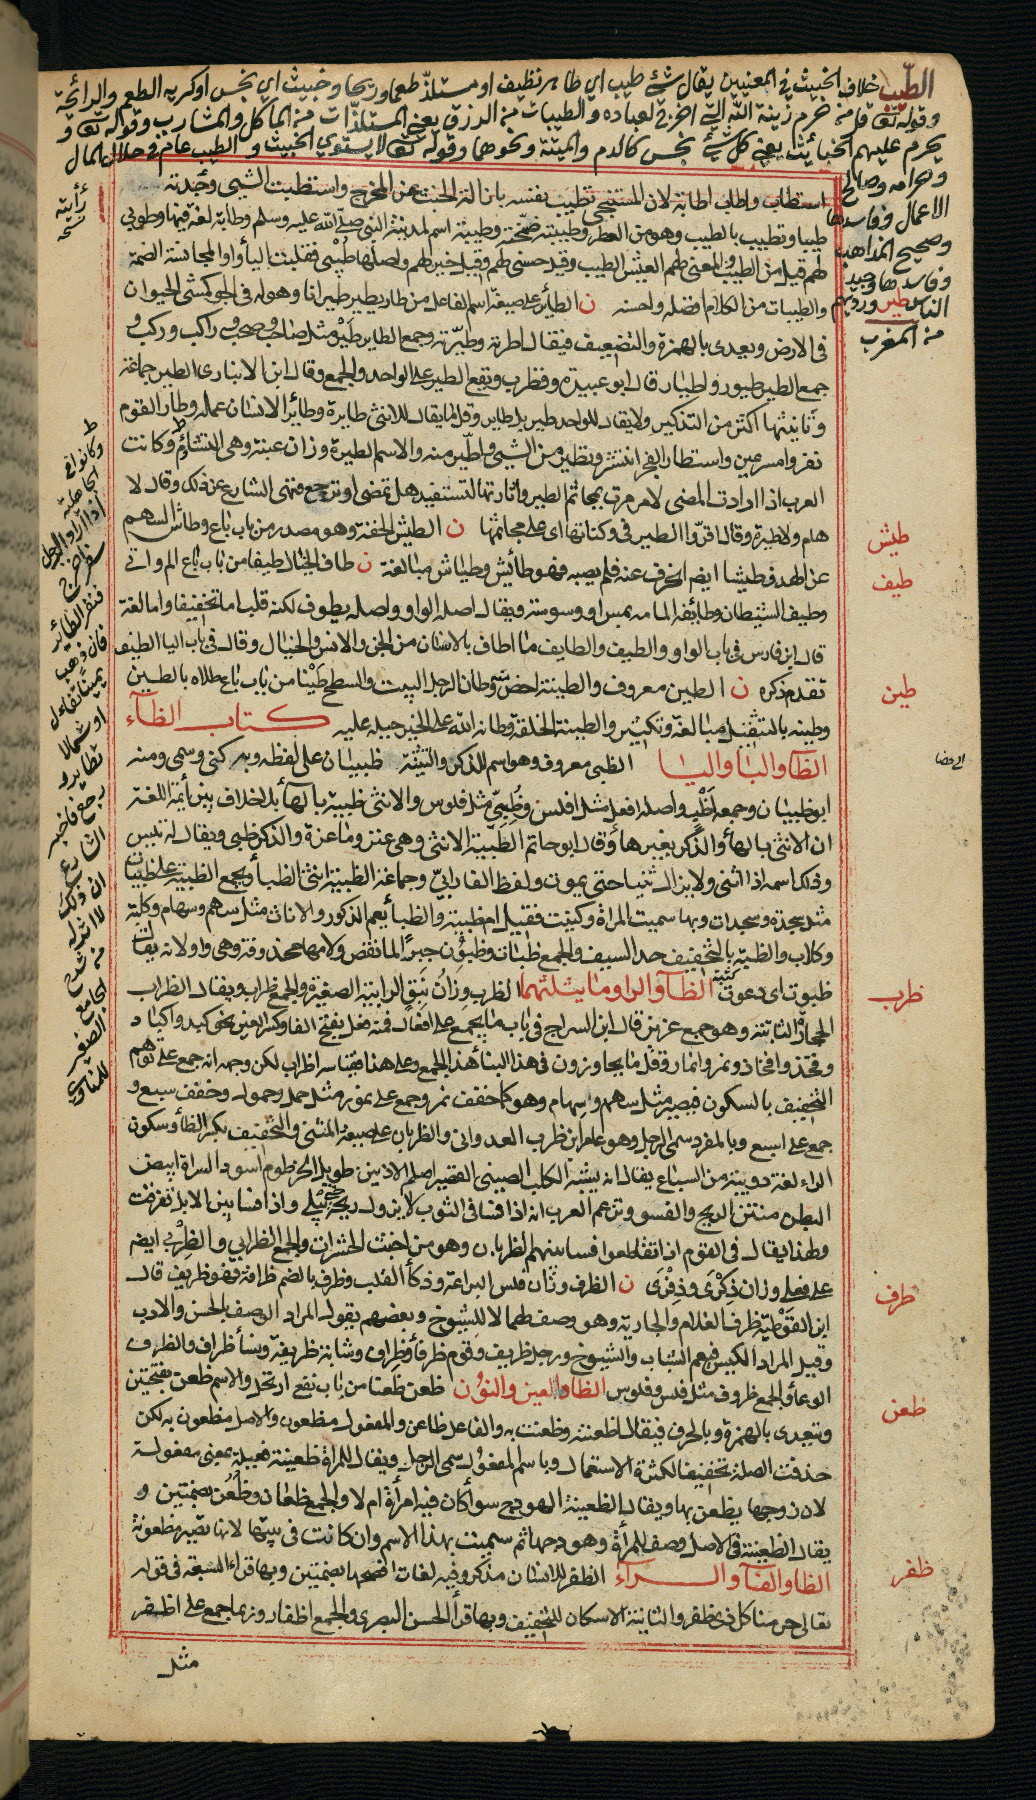 الطيب خلاف الخبيث في المعنيين يقال شيء طيب اي طاهر نظيف او مستلذ طعما وريحا وخبيث اي نجس او كريه الطعم والرائحة
وقوله تعالى قل من حرم زينة الله التي اخرج لعباده والطيبات من الرزق يعني المستلذات من المآكل والمشارب وقوله تعالى و
يحرم عليهم الخبائث يعني كل شيء نجس كالدم والميتة ونحوهما وقوله تعالى لا يستوي الخبيث والطيب عام في حلال المال
وحرامه وصالح
الاعمال وفاسدها
وصحيح المذاهب
وفاسدها وجيد
الناس ورديهم
من المغرب
طير
استطاب واطاب اطابة لان المستنجي تطيب نفسه بازالة الخبث عن المخرج واستطبت الشيء وجدته
طيبا وتطيب بالطيب وهو من العطر وطيبته ضمخته وطيبة اسم لمدينة النبي صلى الله عليه وسلم وطابة لغة فيها وطوبى
لهم قيل من الطيب والمعنى لهم العيش الطيب وقيل حسنى لهم وقيل خير لهم واصلها طيبى فقلبت الياء واوا لمجانسة الضمة
والطيبات من الكلام افضله واحسنه ن الطائر على صيغة اسم الفاعل من طار يطير طيرانا وهو له في الجو كمشي الحيوان
في الارض ويعدى بالهمزة والتضعيف فيقال اطرته وطيرته وجمع الطاير طير مثل صاحب وصحب وراكب وركب و
جمع الطير طيور واطيار قال ابو عبيدة وقطرب ويقع الطير على الواحد والجمع وقال ابن الانباري الطير جماعة
وتانيثها اكثر من التذكير ولا يقال للواحد طير بل طاير وقلما يقال للانثى طايرة وطائر الانسان عمله وطار القوم
نفروا مسرعين واستطار الفجر انتشر وتطير من الشيء واطير منه والاسم الطيرة وزان عنبة وهي التشاؤم وكانت
العرب اذا ارادت المضي لامر مرت بمجاثم الطير واثارتها لتستفيد هل تمضي او ترجع فنهى الشارع عن ذلك وقال لا
هام ولا طيرة وقال اقروا الطير في وكناتها اي على مجاثمها ن الطيش الخفة وهو مصدر من باب باع وطاش السهم
عن الهدف طيشا ايضا انحرف عنه فلم يصبه فهو طائش وطياش مبالغة ن طاف الخيال طيفا من باب باع الم واتى
وطيف الشيطان وطائفه المامه بمس او وسوسة ويقال اصله الواو واصله يطوف لكنه قلب اما تخفيفا واما لغة
قال ابن فارس في باب الواو والطيف والطايف ما اطاف بالانسان من الجن والانس والخيال وقال في باب اليا الطيف
تقدم ذكره ن الطين معروف والطينة اخص منه وطان الرجل البيت والسطح طينا من باب باع طلاه بالطين
وطينه بالتثقيل مبالغة وتكثير والطينة الخلقة وطانه الله على الخير جبله عليه كتاب الظآء
الظا والبا واليا الظبي معروف وهو اسم للذكر والتثنية ظبيان على لفظه وبه كني وسمي ومنه
ابو ظبيان وجمعه اظب واصله افعل مثل افلس وظبي مثل فلوس والانثى ظبية بالهاء بلا خلاف بين ائمة اللغة
ان الانثى بالهاء والذكر بغير هاء وقال ابو حاتم الظبية الانثى وهي عنز وماعزة والذكر ظبي ويقال له تيس
وذلك اسمه اذا اثنى ولا يزال ثنيا حتى يموت ولفظ الفارابي وجماعة الظبية انثى الظباء وجمع الظبية ظبيات
مثل سجدة وسجدات وبها سميت المراة وكنيت فقيل ام ظبية والظباء يعم الذكور والاناث مثل سهم وسهام وكلبة
وكلاب والظبة بالتخفيف حد السيف والجمع ظبات وظبون جبرا لما نقص ولامها محذوفة وهي واو لانه يقال
ظبوت اي دعوت الظآ والرا وما يثلثهما الظرب وزان نبق الرابية الصغيرة والجمع ظراب ويقال الظراب
الحجارة الثابتة وهو جمع عزيز قال ابن السراج في باب ما يجمع على افعال فمنه فعل بفتح الفا وكسر العين نحو كبد واكباد
وفخذ وافخاذ ونمر وانمار وقل ما يجاوزون في هذا البناء هذا الجمع وعلى هذا فقياسه اظراب لكن وجهه انه جمع على توهم
التخفيف بالسكون فيصير مثل سهم وسهام وهو كما خفف نمر وجمع على نمور مثل حمل وحمول وخفف سبع و
جمع على اسبع وبالمفرد سمي الرجل وهو عامر ابن ظرب العدواني والظربان على صيغة المثنى والتخفيف بكسر الظاء وسكون
الراء لغة دويبة من السباع يقال انه يشبه الكلب الصيني القصير اصلم الاذنين طويل الخرطوم اسود السراة ابيض
البطن منتن الريح والفسو وتزعم العرب انه اذا فسا في الثوب لا يزول ريحه حتى يبلى واذا فسا بين الابل تفرقت
ولهذا يقال في القوم اذا تقاطعوا فسا بينهم الظربان وهو من اخبث الحشرات والجمع الظرابي والظربى ايضا
على فعلى وزان ذكرى وذفرى ن الظرف وزان فلس البراعة وذكاء القلب وظرف بالضم ظرافة فهو ظريف قال
ابن القوطية ظرف الغلام والجارية وهو وصف لهما لا للشيوخ وبعضهم يقول المراد الوصف بالحسن والادب
وقيل المراد الكيس فيعم الشباب والشيوخ ورجل ظريف وقوم ظرفاء وظراف وشابة ظريفة ونساء ظراف والظرف
الوعاء والجمع ظروف مثل فلس وفلوس الظا والعين والنون ظعن ظعنا من باب نفع ارتحل والاسم ظعن بفتحتين
ويتعدى بالهمزة وبالحرف فيقال اظعنته وظعنت به والفاعل ظاعن والمفعول مظعون والاصل مظعون به لكن
حذفت الصلة تخفيفا لكثرة الاستعمال وباسم المفعول سمي الرجل ويقال للمراة ظعينة فعيلة بمعنى مفعولة
لان زوجها يظعن بها ويقال الظعينة الهودج سواء كان فيه امراة ام لا والجمع ظعائن وظعن بضمتين و
يقال الظعينة في الاصل وصف للمراة وهودجها ثم سميت بهذا الاسم وان كانت في بيتها لانها تصير مظعونة
الظا والفآ والــرآء الظفر للانسان مذكر وفيه لغات افصحها بضمتين وبها قراء السبعة في قوله
تعالى حرمنا كل ذي ظفر والثانية الاسكان للتخفيف وبها قرأ الحسن البصري والجمع اظفار وربما جمع على اظفر
مثل
طيش
طيف
طين
ظرب
ظرف
ظعن
ظفر
رأيته
نسخه
ط
وكانوا في
الجاهلية
اذا اراد الرجل
سفرا خرج
فنفر الطائر
فان ذهب
يمينا تفاءل
او شمالا
تطاير و
رجع فاخبر
الشارع
ان ذلك
لا اثر له
من شرح
الجامع
الصغير
للمناوي